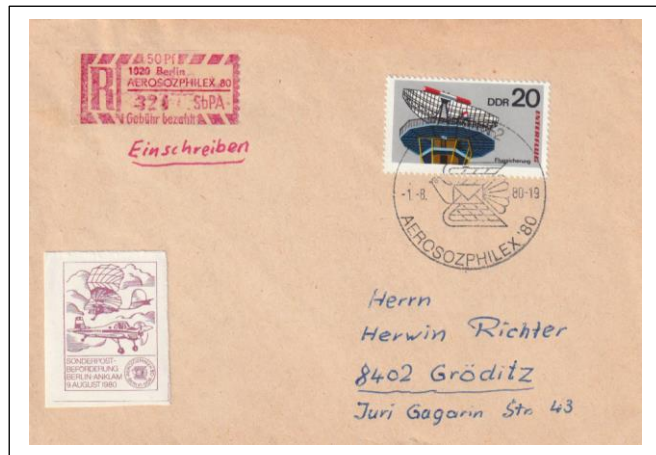 50 Pf
1020 Berlin
AEROSOZPHILEX 80
R
324 SbPA
Gebühr bezahlt
Einschreiben
DDR 20
INTERFLUG
Flugsicherung
-1.-8. 80-19
AEROSOZPHILEX '80
SONDERPOST-
BEFÖRDERUNG
BERLIN-ANKLAM
9.AUGUST 1980
Herrn
Herwin Richter
8402 Gröditz
Juri Gagarin Str. 43